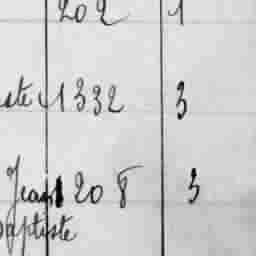 202 1
1332 3
Jean 208 3
Baptiste